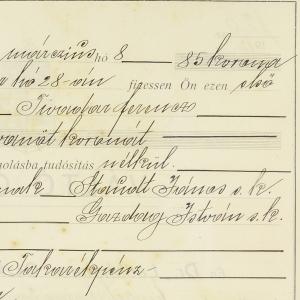 márczius hó 8 85 korona
hó 28-án fizessen Ön ezen első
Tivadar ferencz
koronát
molásba, tudósitás nélkül.
nak Staudt János s. k.
Gazdag István s. k.
Takarékpénz-